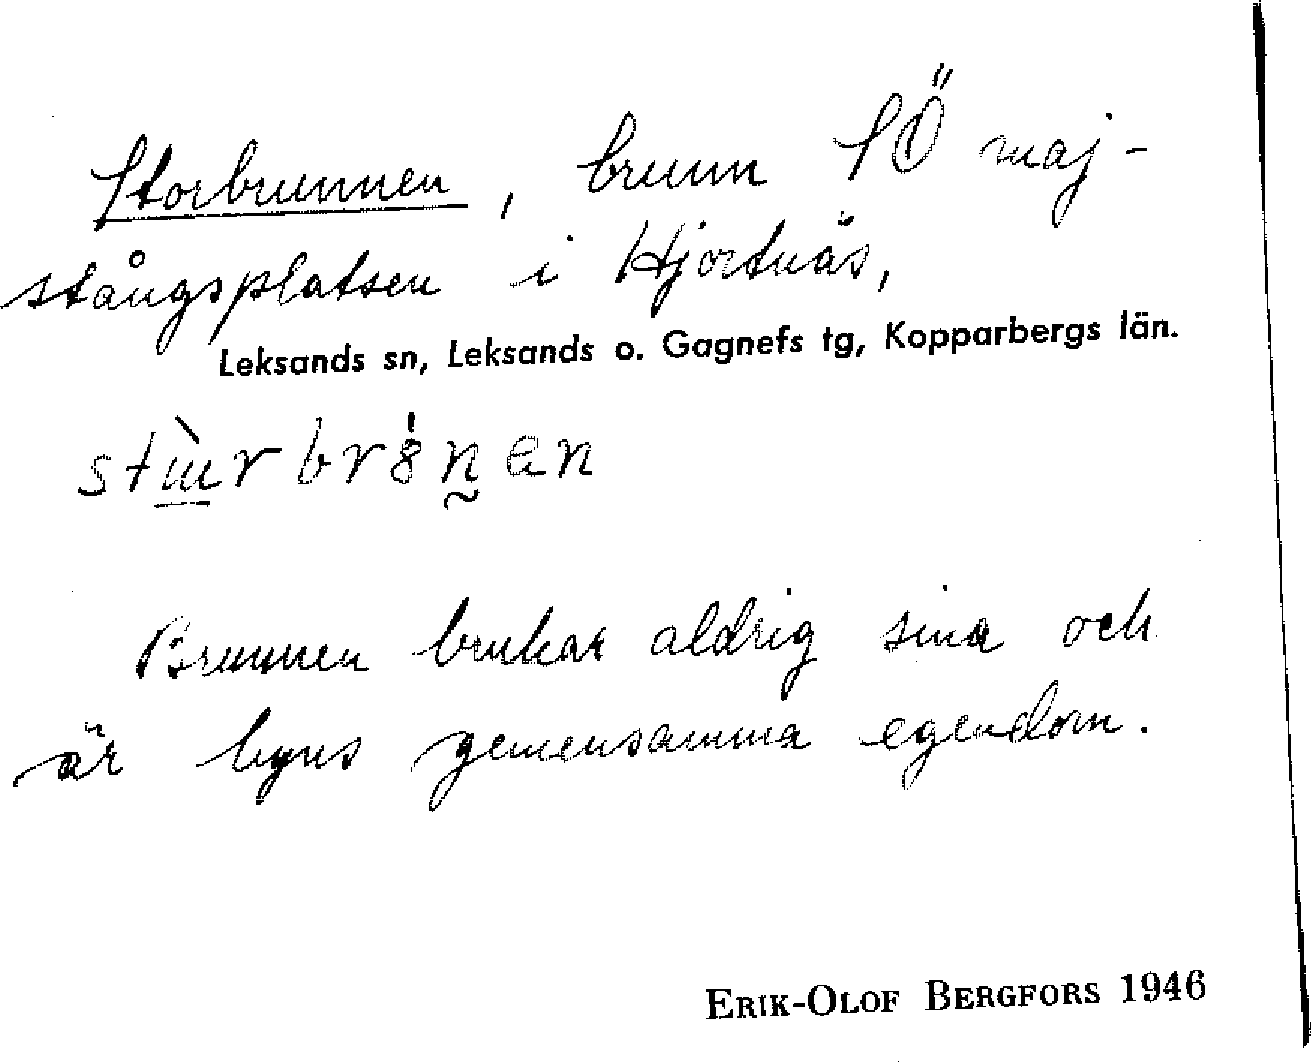 Storbrunnen, brunn SÖ maj-
stångsplatsen i Hjortnäs,
Leksands sn, Leksands o. Gagnefs tg, Kopparbergs län.
Brunnen brukar aldrig sina och
är byns gemensamma egendom.
ERIK-OLOF BERGFORS 1946